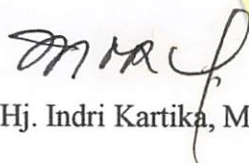 Hj. Indri Kartika, M